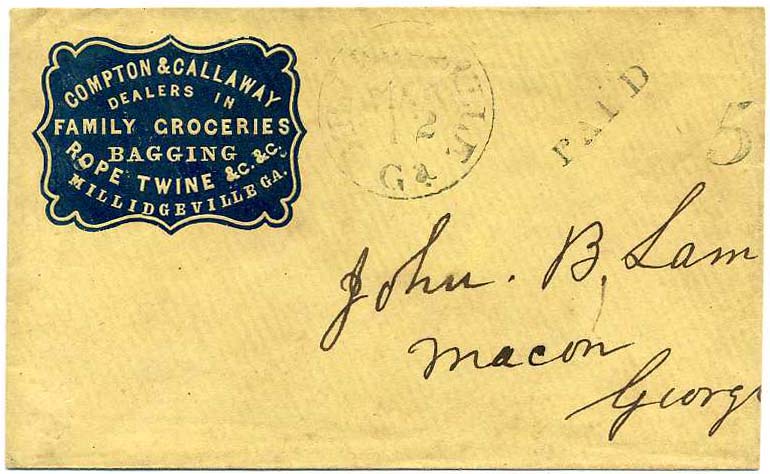 COMPTON & CALLAWAY
DEALERS IN
FAMILY GROCERIES
BAGGING
ROPE TWINE &C. &C.
MILLIDGEVILLE GA.
12
Ga
PAID
5
John. B, Lam
Macon
Georg